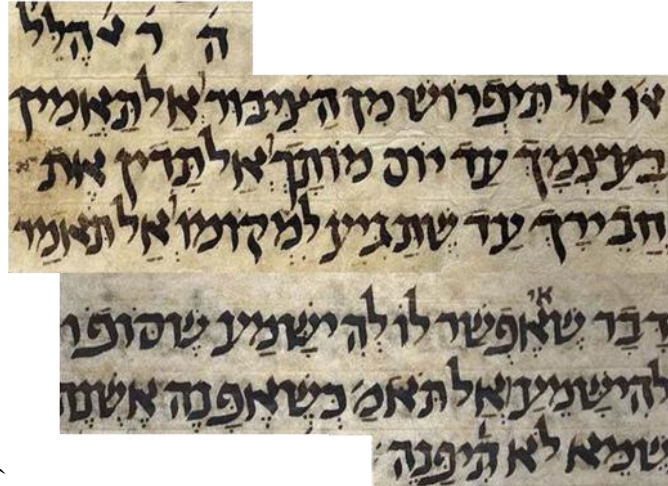 ה ר י הלל
או אל תיפרוש מן הציבור אל תאמין
בעצמך עד יום מותך אל תדין את
חבירך עד שתגיע למקומו אל תאמר
דבר שאפשר לו להישמע שסופו
להישמע אל תאמ כשאפנה אשנה
שמא לא תיפנה